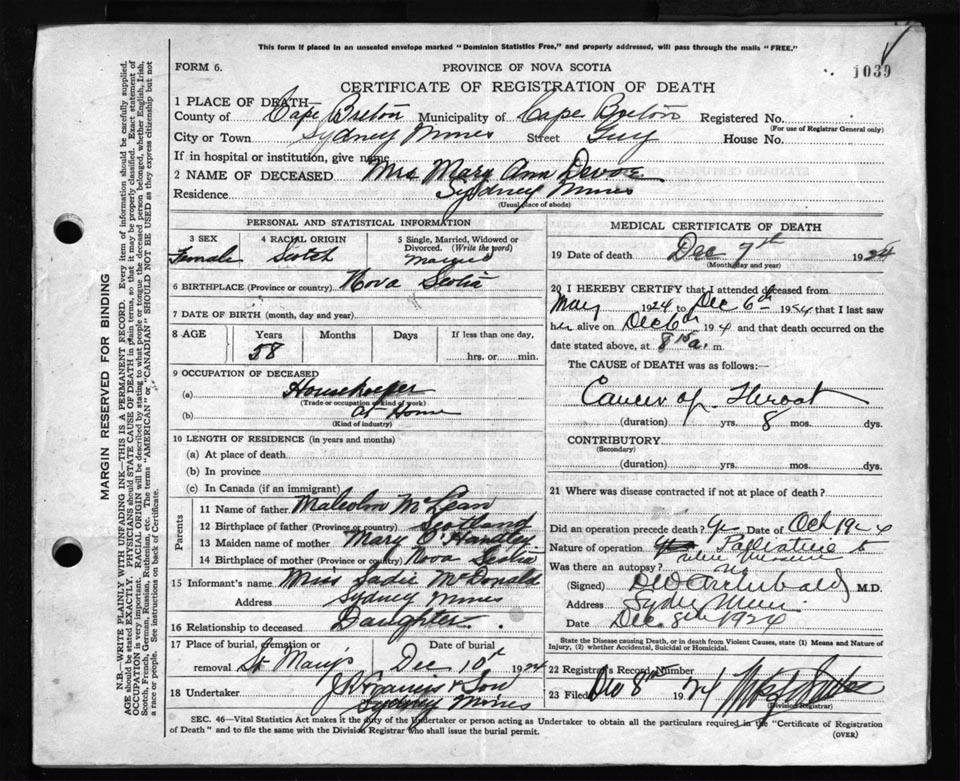 This form if placed in an unsealed envelope marked "Dominion Statistics Free," and properly addressed, will pass through the mails "FREE."
FORM 6.
PROVINCE OF NOVA SCOTIA
1039
CERTIFICATE OF REGISTRATION OF DEATH
1 PLACE OF DEATH—
County of Cape Breton Municipality of Cape Breton Registered No.
(For use of Registrar General only)
City or Town Sydney Mines Street Guy House No.
If in hospital or institution, give name
2 NAME OF DECEASED Mrs Mary Ann Devoe
Residence Sydney Mines
(Usual place of abode)
PERSONAL AND STATISTICAL INFORMATION
3 SEX
Female
4 RACIAL ORIGIN
Scotch
5 Single, Married, Widowed or Divorced. (Write the word)
Married
6 BIRTHPLACE (Province or country) Nova Scotia
7 DATE OF BIRTH (month, day and year)
8 AGE Years Months Days If less than one day,
58 hrs. or min.
9 OCCUPATION OF DECEASED
(a) Housekeeper
(Trade or occupation or kind of work)
(b) At Home
(Kind of industry)
10 LENGTH OF RESIDENCE (in years and months)
(a) At place of death
(b) In province
(c) In Canada (if an immigrant)
Parents
11 Name of father Malcolm McLean
12 Birthplace of father (Province or country) Scotland
13 Maiden name of mother Mary O'Handley
14 Birthplace of mother (Province or country) Nova Scotia
15 Informant's name Miss Sadie McDonald
Address Sydney Mines
16 Relationship to deceased Daughter
17 Place of burial, cremation or removal St Mary's
Date of burial Dec 10th 1924
18 Undertaker J R Francis & Son
Sydney Mines
MEDICAL CERTIFICATE OF DEATH
19 Date of death Dec 7th 1924
(Month, day and year)
20 I HEREBY CERTIFY that I attended deceased from
May 1924 to Dec 6th 1924 that I last saw
her alive on Dec 6th 1924 and that death occurred on the
date stated above, at 8 15 a. m.
The CAUSE OF DEATH was as follows:—
Cancer of Throat
(duration) yrs. 8 mos. dys.
CONTRIBUTORY
(Secondary)
(duration) yrs. mos. dys.
21 Where was disease contracted if not at place of death?
Did an operation precede death? Yes Date of Oct 1924
Nature of operation Palliative to
Was there an autopsy? No
(Signed) Archibald M.D.
Address Sydney Mines
Date Dec 8th 1924
State the Disease causing Death, or in death from Violent Causes, state (1) Means and Nature of Injury, (2) whether Accidental, Suicidal or Homicidal.
22 Registrars Record Number
23 Filed Dec 8th 1924
(Division Registrar)
SEC. 46—Vital Statistics Act makes it the duty of the Undertaker or person acting as Undertaker to obtain all the particulars required in the "Certificate of Registration
of Death" and to file the same with the Division Registrar who shall issue the burial permit.
(OVER)
MARGIN RESERVED FOR BINDING
N.B.—WRITE PLAINLY WITH UNFADING INK—THIS IS A PERMANENT RECORD. Every item of information should be carefully supplied.
AGE should be stated EXACTLY. PHYSICIANS should STATE CAUSE OF DEATH in plain terms, so that it may be properly classified. Exact statement of
OCCUPATION is very important. RACIAL ORIGIN will be described by stating to what people or tongue the deceased person belonged, whether English, Irish,
Scotch, French, German, Russian, Ruthenian, etc. The terms "AMERICAN" or "CANADIAN" SHOULD NOT BE USED as they express citizenship but not
a race or people. See instructions on back of Certificate.